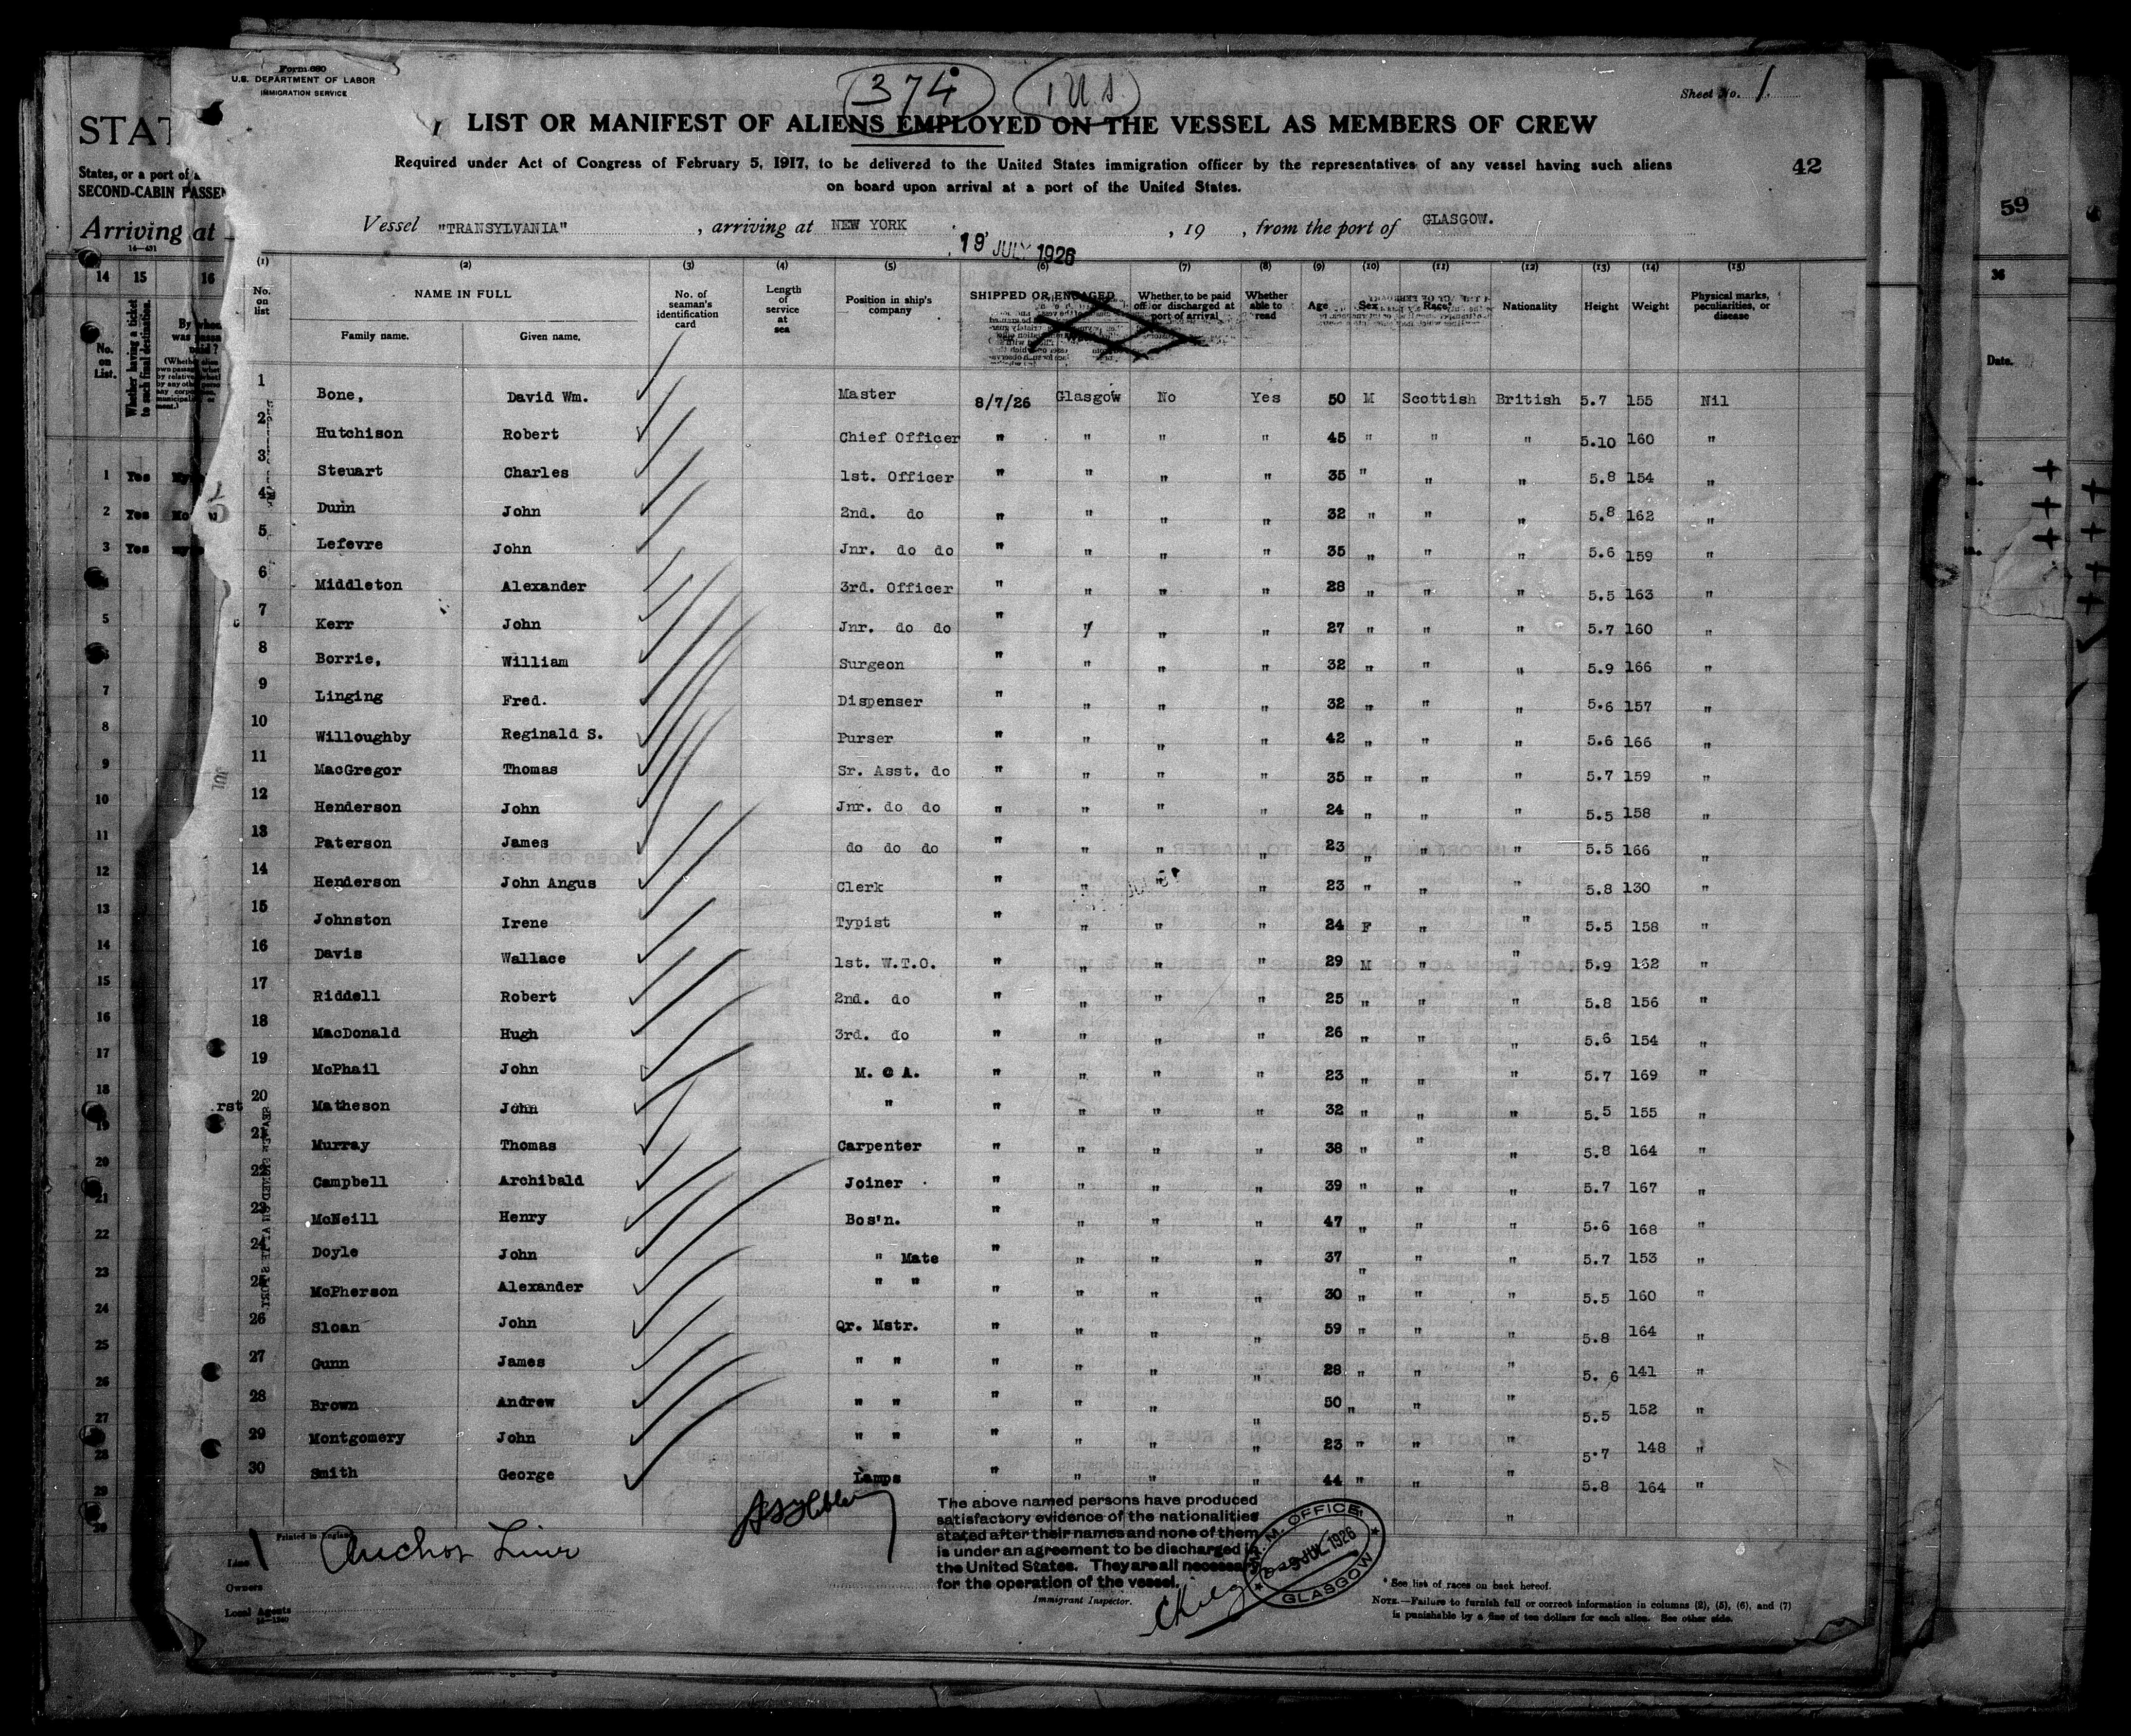 Form 680
U.S. DEPARTMENT OF LABOR
IMMIGRATION SERVICE
374
1 U.S.
Sheet No. 1.
LIST OR MANIFEST OF ALIENS EMPLOYED ON THE VESSEL AS MEMBERS OF CREW
Required under Act of Congress of February 5, 1917, to be delivered to the United States immigration officer by the representatives of any vessel having such aliens
on board upon arrival at a port of the United States.
42
Vessel "TRANSYLVANIA", arriving at NEW YORK, 19 , from the port of GLASGOW.
19 JULY 1926
(1) (2) (3) (4) (5) (6) (7) (8) (9) (10) (11) (12) (13) (14) (15)
No. on list NAME IN FULL Family name. Given name. No. of seaman's identification card Length of service at sea Position in ship's company SHIPPED OR ENGAGED Whether to be paid off or discharged at port of arrival Whether able to read Age Sex Race* Nationality Height Weight Physical marks, peculiarities, or disease
1 Bone, David Wm. Master 8/7/26 Glasgow No Yes 50 M Scottish British 5.7 155 Nil
2 Hutchison Robert Chief Officer " " " " 45 " " " 5.10 160 "
3 Steuart Charles 1st. Officer " " " " 35 " " " 5.8 154 "
4 Dunn John 2nd. do " " " " 32 " " " 5.8 162 "
5 Lefevre John Jnr. do do " " " " 35 " " " 5.6 159 "
6 Middleton Alexander 3rd. Officer " " " " 28 " " " 5.5 163 "
7 Kerr John Jnr. do do " " " " 27 " " " 5.7 160 "
8 Borrie, William Surgeon " " " " 32 " " " 5.9 166 "
9 Linging Fred. Dispenser " " " " 32 " " " 5.6 157 "
10 Willoughby Reginald S. Purser " " " " 42 " " " 5.6 166 "
11 MacGregor Thomas Sr. Asst. do " " " " 35 " " " 5.7 159 "
12 Henderson John Jnr. do do " " " " 24 " " " 5.5 158 "
13 Paterson James do do do " " " " 23 " " " 5.5 166 "
14 Henderson John Angus Clerk " " " " 23 " " " 5.8 130 "
15 Johnston Irene Typist " " " " 24 F " " 5.5 158 "
16 Davis Wallace 1st. W.T.O. " " " " 29 M " " 5.9 162 "
17 Riddell Robert 2nd. do " " " " 25 " " " 5.8 156 "
18 MacDonald Hugh 3rd. do " " " " 26 " " " 5.6 154 "
19 McPhail John M. C A. " " " " 23 " " " 5.7 169 "
20 Matheson John " " " " " 32 " " " 5.5 155 "
21 Murray Thomas Carpenter " " " " 38 " " " 5.8 164 "
22 Campbell Archibald Joiner " " " " 39 " " " 5.7 167 "
23 McNeill Henry Bos'n. " " " " 47 " " " 5.6 168 "
24 Doyle John " Mate " " " " 37 " " " 5.7 153 "
25 McPherson Alexander " " " " " " 30 " " " 5.5 160 "
26 Sloan John Qr. Mstr. " " " " 59 " " " 5.8 164 "
27 Gunn James " " " " " " 28 " " " 5. 6 141 "
28 Brown Andrew " " " " " " 50 " " " 5.5 152 "
29 Montgomery John " " " " " " 23 " " " 5.7 148 "
30 Smith George Lamps " " " " 44 " " " 5.8 164 "
The above named persons have produced
satisfactory evidence of the nationalities
stated after their names and none of them
is under an agreement to be discharged in
the United States. They are all necessary
for the operation of the vessel.
Immigrant Inspector.
M.M. OFFICE
JUL 1926
GLASGOW
Printed in England
Line Anchor Line
Owners
Local Agents
* See list of races on back hereof.
NOTE.—Failure to furnish full or correct information in columns (2), (5), (6), and (7)
is punishable by a fine of ten dollars for each alien. See other side.
STAT
States, or a port of
SECOND-CABIN PASSEN
Arriving at
14 15 16
No. on List.
Whether having a ticket to such final destination.
1 Yes
2 Yes
3 Yes
59
36
Date.